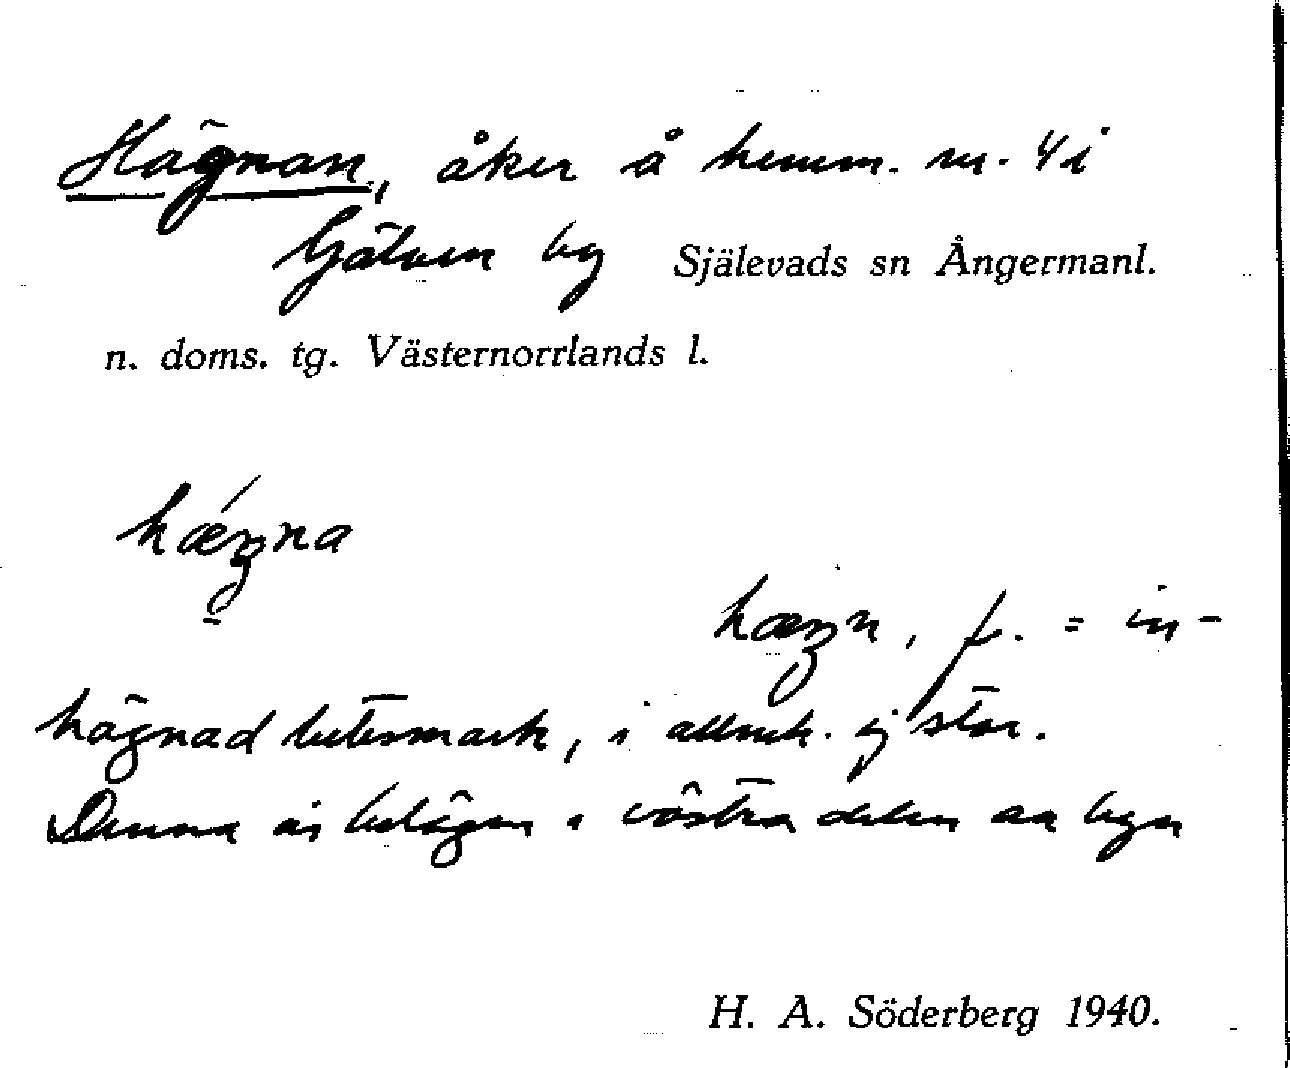 Hägnan, åker å hemm. nr. 4 i
Gålven by Själevads sn Ångermanl.
n. doms. tg. Västernorrlands l.
hægna
hægn, f. = in-
hägnad betesmark, i allmh. ej stor.
Denna är belägen i västra delen av byn
H. A. Söderberg 1940.